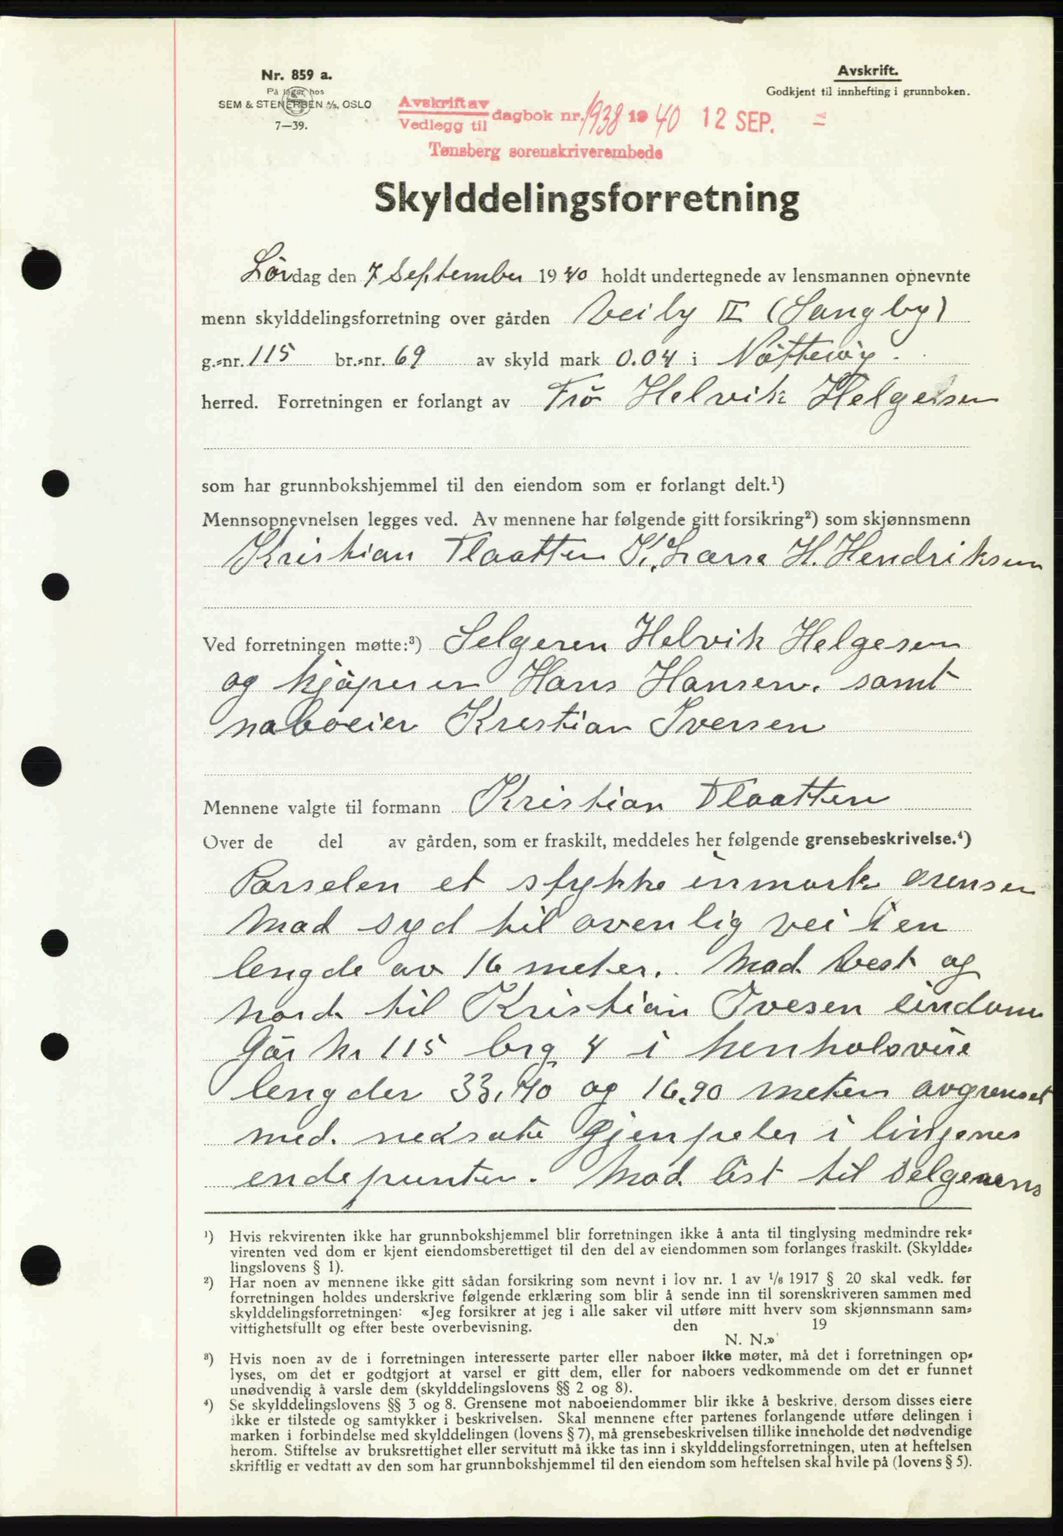 Nr. 859 a.
På lager hos
SEM & STENERSEN A/S, OSLO
7—39.
Avskrift.
Godkjent til innhefting i grunnboken.
Avskrift av
Vedlegg til dagbok nr. 1938 1940 12 SEP.
Tønsberg sorenskriverembede
Skylddelingsforretning
Lördag den 7 September 1940 holdt undertegnede av lensmannen opnevnte
menn skylddelingsforretning over gården Veiby II (Sangby)
g.-nr. 115 br.-nr. 69 av skyld mark 0.04 i Nötteröy.
herred. Forretningen er forlangt av Frö Helvik Helgesen
som har grunnbokshjemmel til den eiendom som er forlangt delt.¹)
Mennsopnevnelsen legges ved. Av mennene har følgende gitt forsikring²) som skjønnsmenn
Kristian Flaatten K. Larse H. Hendriksen
Ved forretningen møtte:³) Selgeren Helvik Helgesen
og kjöperen Hans Hansen. samt
naboeier Kristian Iversen
Mennene valgte til formann Kristian Flaatten
Over de del av gården, som er fraskilt, meddeles her følgende grensebeskrivelse.⁴)
Parselen et stykke inmark grenser
Mod syd til ovenlig vei i en
lengde av 16 meter. Mod vest og
nord til Kristian Ivesen eindom
Går Nr 115 brg 4 i henholsvise
lengder 33,40 og 16,90 meter avgrenset
med nedsate Gjenpeler i linjenes
endepunter. Mod öst til selgerens
¹) Hvis rekvirenten ikke har grunnbokshjemmel blir forretningen ikke å anta til tinglysing medmindre rek-
virenten ved dom er kjent eiendomsberettiget til den del av eiendommen som forlanges fraskilt. (Skyldde-
lingslovens § 1).
²) Har noen av mennene ikke gitt sådan forsikring som nevnt i lov nr. 1 av 1/6 1917 § 20 skal vedk. før
forretningen holdes underskrive følgende erklæring som blir å sende inn til sorenskriveren sammen med
skylddelingsforretningen: «Jeg forsikrer at jeg i alle saker vil utføre mitt hverv som skjønnsmann sam-
vittighetsfullt og efter beste overbevisning. den 19
N. N.»
³) Hvis noen av de i forretningen interesserte parter eller naboer ikke møter, må det i forretningen op-
lyses, om det er godtgjort at varsel er gitt dem, eller for naboers vedkommende om det er funnet
unødvendig å varsle dem (skylddelingslovens §§ 2 og 8).
⁴) Se skylddelingslovens §§ 3 og 8. Grensene mot naboeiendommer blir ikke å beskrive, dersom disses eiere
ikke er tilstede og samtykker i beskrivelsen. Skal mennene efter partenes forlangende utføre delingen i
marken i forbindelse med skylddelingen (lovens § 7), må grensebeskrivelsen tillike inneholde det nødvendige
herom. Stiftelse av bruksrettighet eller servitutt må ikke tas inn i skylddelingsforretningen, uten at heftelsen
skriftlig er vedtatt av den som har grunnbokshjemmel til den eiendom som heftelsen skal hvile på (lovens § 5).